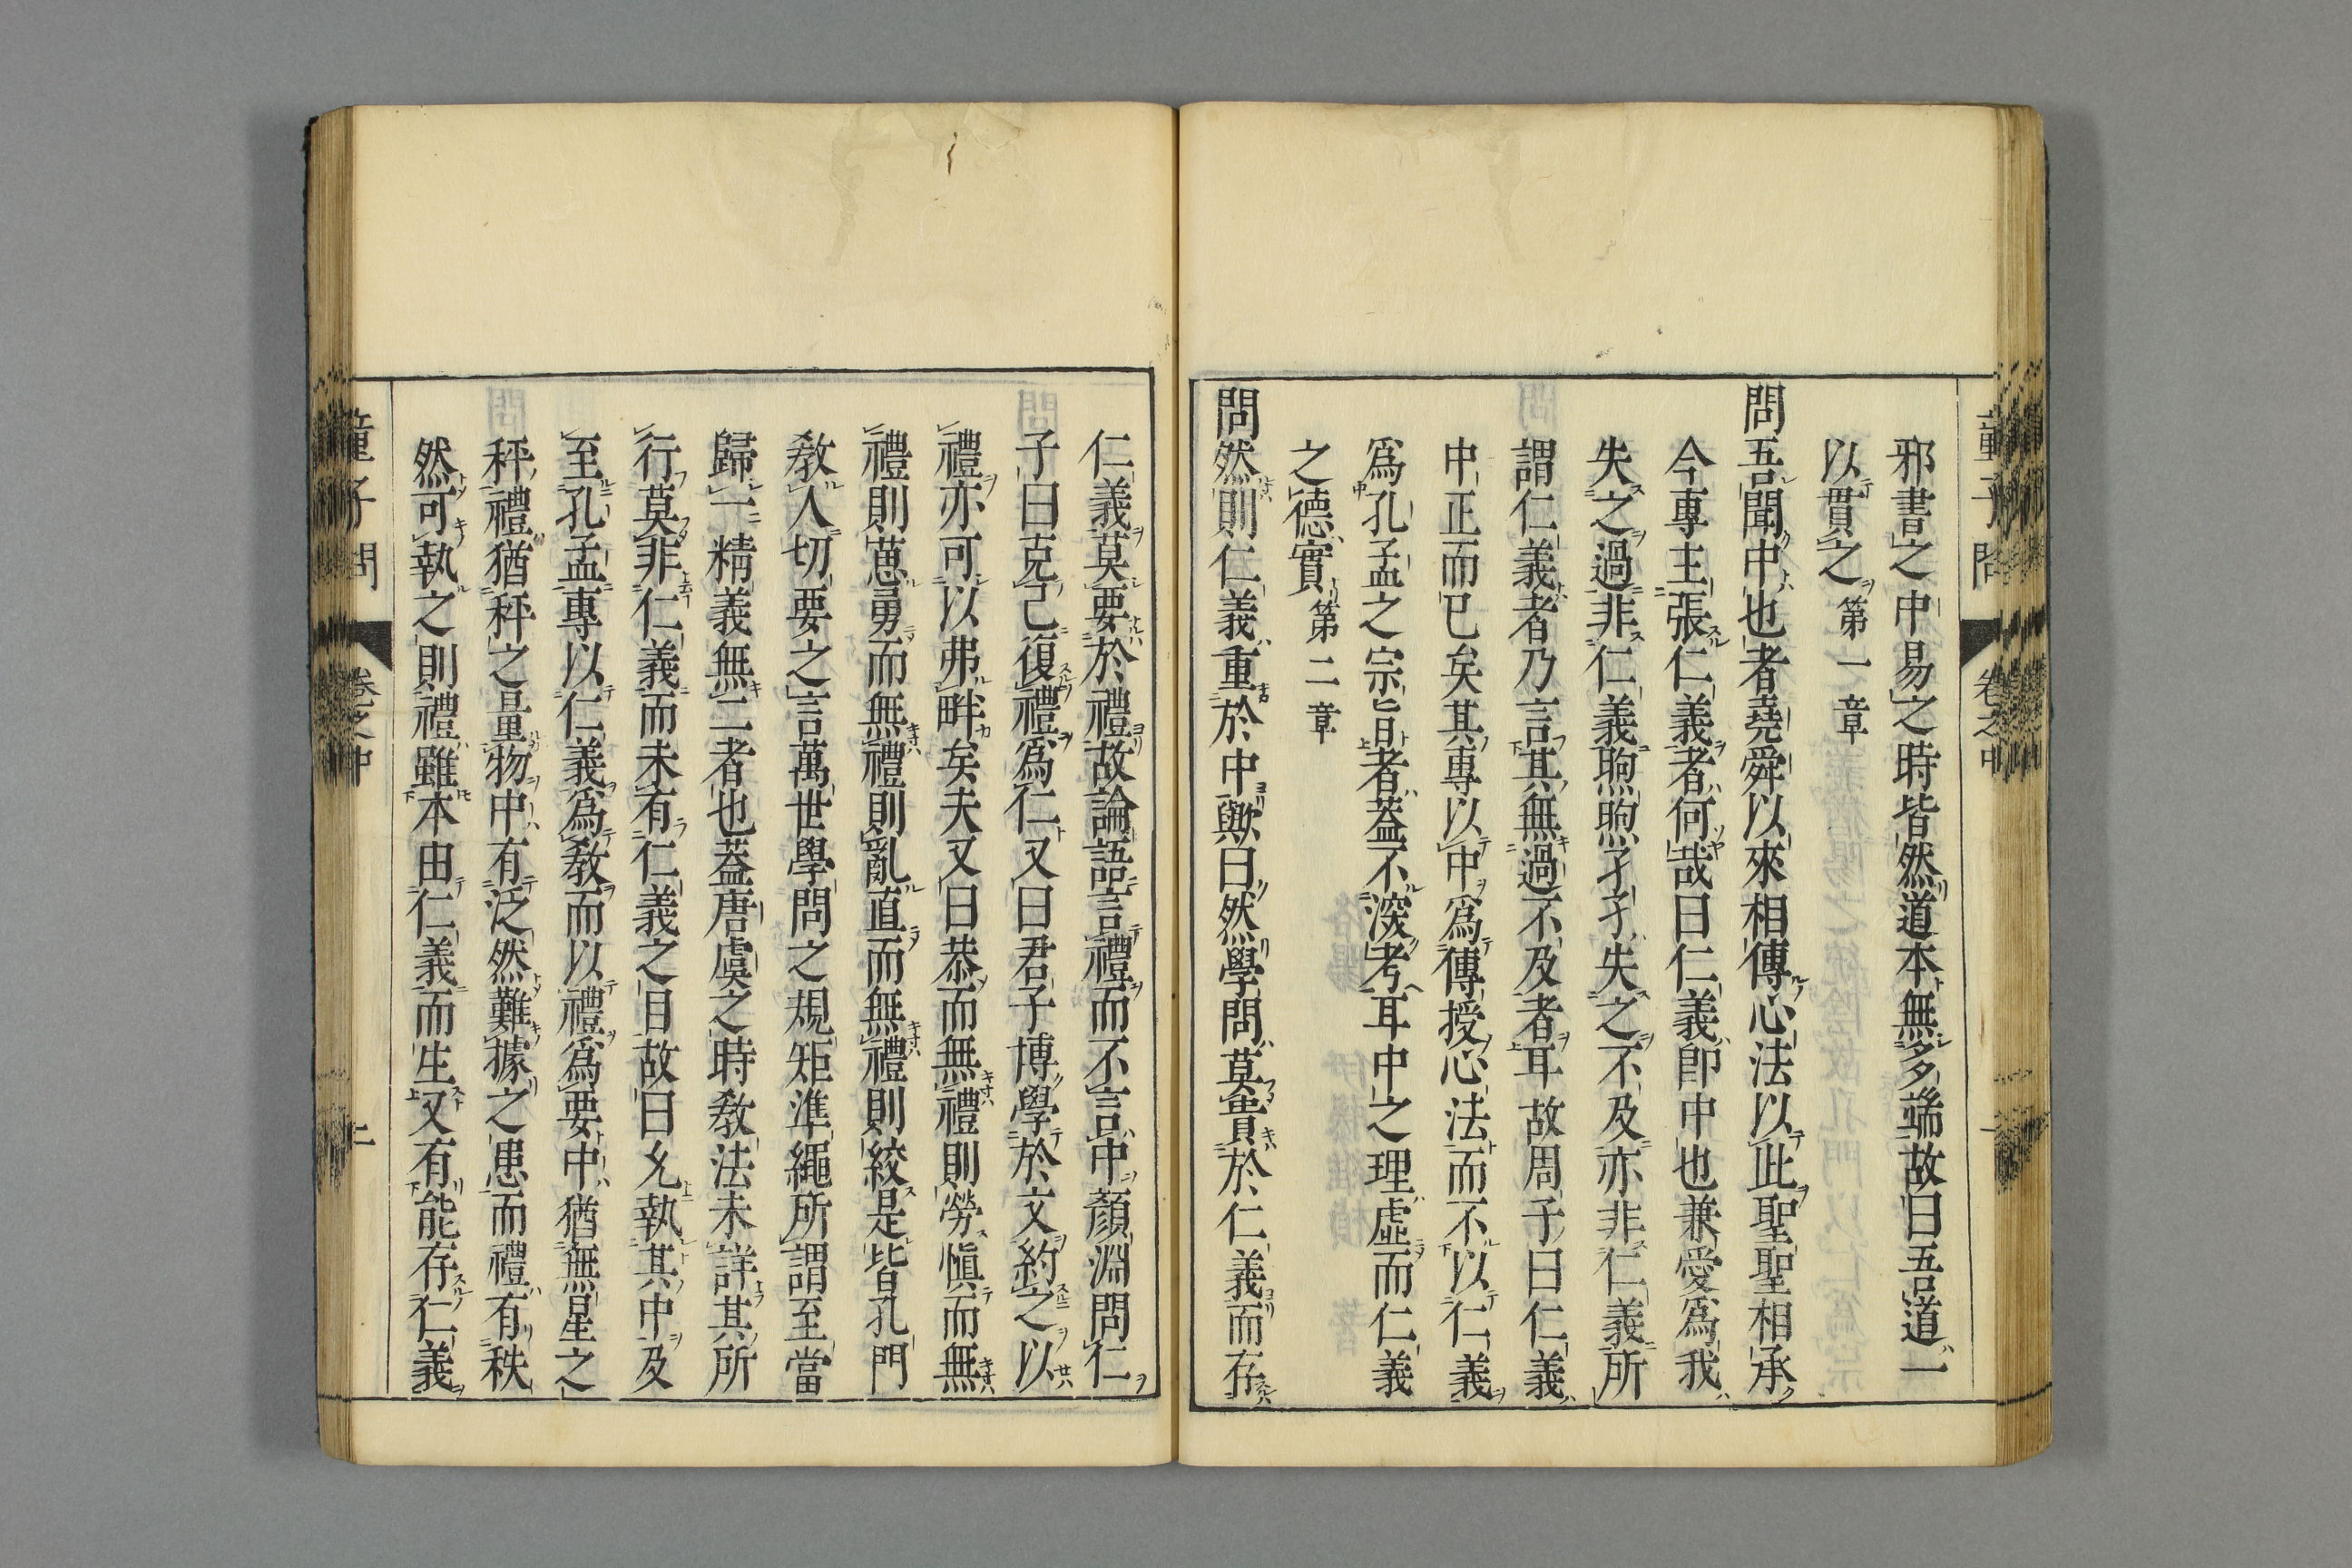 童子問 卷之中 一
邪書之中易之時皆然道本無多端故曰吾道一
以貫之第一章
問吾聞中也者堯舜以來相傳心法以此聖聖相承
今專主張仁義者何哉曰仁義卽中也兼愛爲我
失之過非仁義煦煦孑孑失之不及亦非仁義所
謂仁義者乃言其無過不及者耳故周子曰仁義
中正而已矣其專以中爲傳授心法而不以仁義
爲孔孟之宗旨者蓋不深考耳中之理虛而仁義
之德實第二章
問然則仁義重於中歟曰然學問莫貴於仁義而存
仁義莫要於禮故論語言禮而不言中顏淵問仁
子曰克己復禮爲仁又曰君子博學於文約之以
禮亦可以弗畔矣夫又曰恭而無禮則勞愼而無
禮則葸勇而無禮則亂直而無禮則絞是皆孔門
敎人切要之言萬世學問之規矩準繩所謂至當
歸一精義無二者也蓋唐虞之時敎法未詳其所
行莫非仁義而未有仁義之目故曰允執其中及
至孔孟專以仁義爲敎而以禮爲要中猶無星之
秤禮猶秤之量物中有泛然難據之患而禮有秩
然可執之則禮雖本由仁義而生又有能存仁義
童子問 卷之中 二